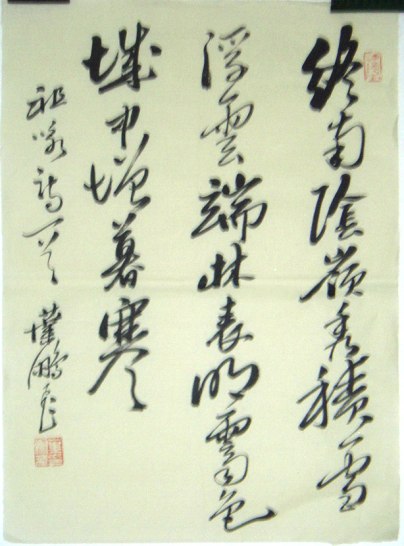 終南陰嶺秀積雪
浮雲端林表明霽色
城中增暮寒
祖咏詩一首 鵬飛